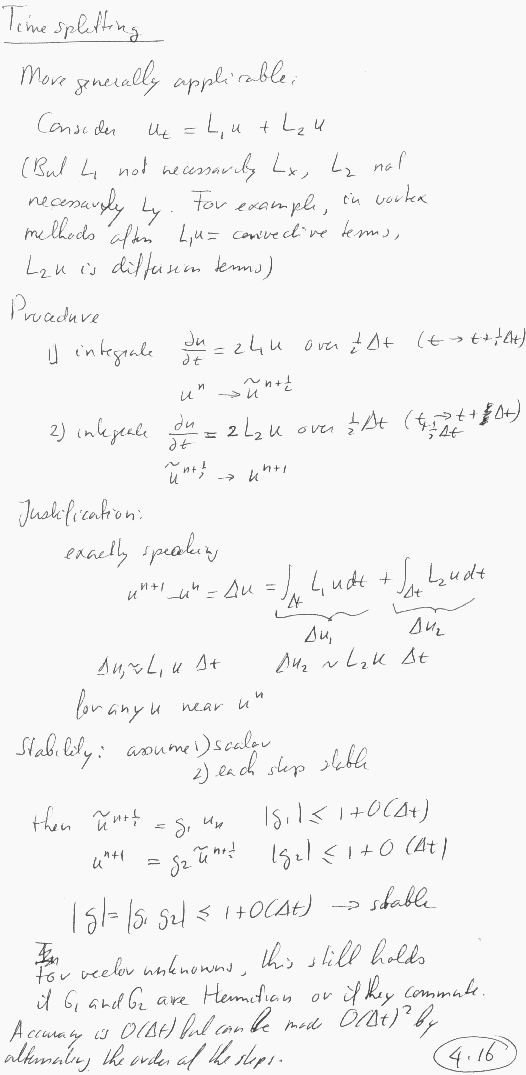 Time splitting
More generally applicable:
Consider u_t = L₁u + L₂u
(But L₁ not necessarily Lₓ, L₂ not
necessarily L_y. For example, in vortex
methods often L₁u = convective terms,
L₂u is diffusion terms)
Procedure
1) integrate ∂u/∂t = 2L₁u over ½Δt (t → t+½Δt)
uⁿ → ũ^{n+½}
2) integrate ∂u/∂t = 2L₂u over ½Δt (t+½Δt → t+Δt)
ũ^{n+½} → u^{n+1}
Justification:
exactly speaking
u^{n+1} - uⁿ = Δu = ∫_{Δt} L₁u dt + ∫_{Δt} L₂u dt
Δu₁ Δu₂
Δu₁ ≈ L₁u Δt Δu₂ ~ L₂u Δt
for any u near uⁿ
Stability: assume 1) scalar
2) each step stable
then ũ^{n+½} = g₁ uₙ |g₁| ≤ 1+O(Δt)
u^{n+1} = g₂ ũ^{n+½} |g₂| ≤ 1+O(Δt)
|g| = |g₁ g₂| ≤ 1+O(Δt) → stable
For vector unknowns, this still holds
if G₁ and G₂ are Hermitian or if they commute.
Accuracy is O(Δt) but can be made O(Δt)² by
alternating the order of the steps.
4.16